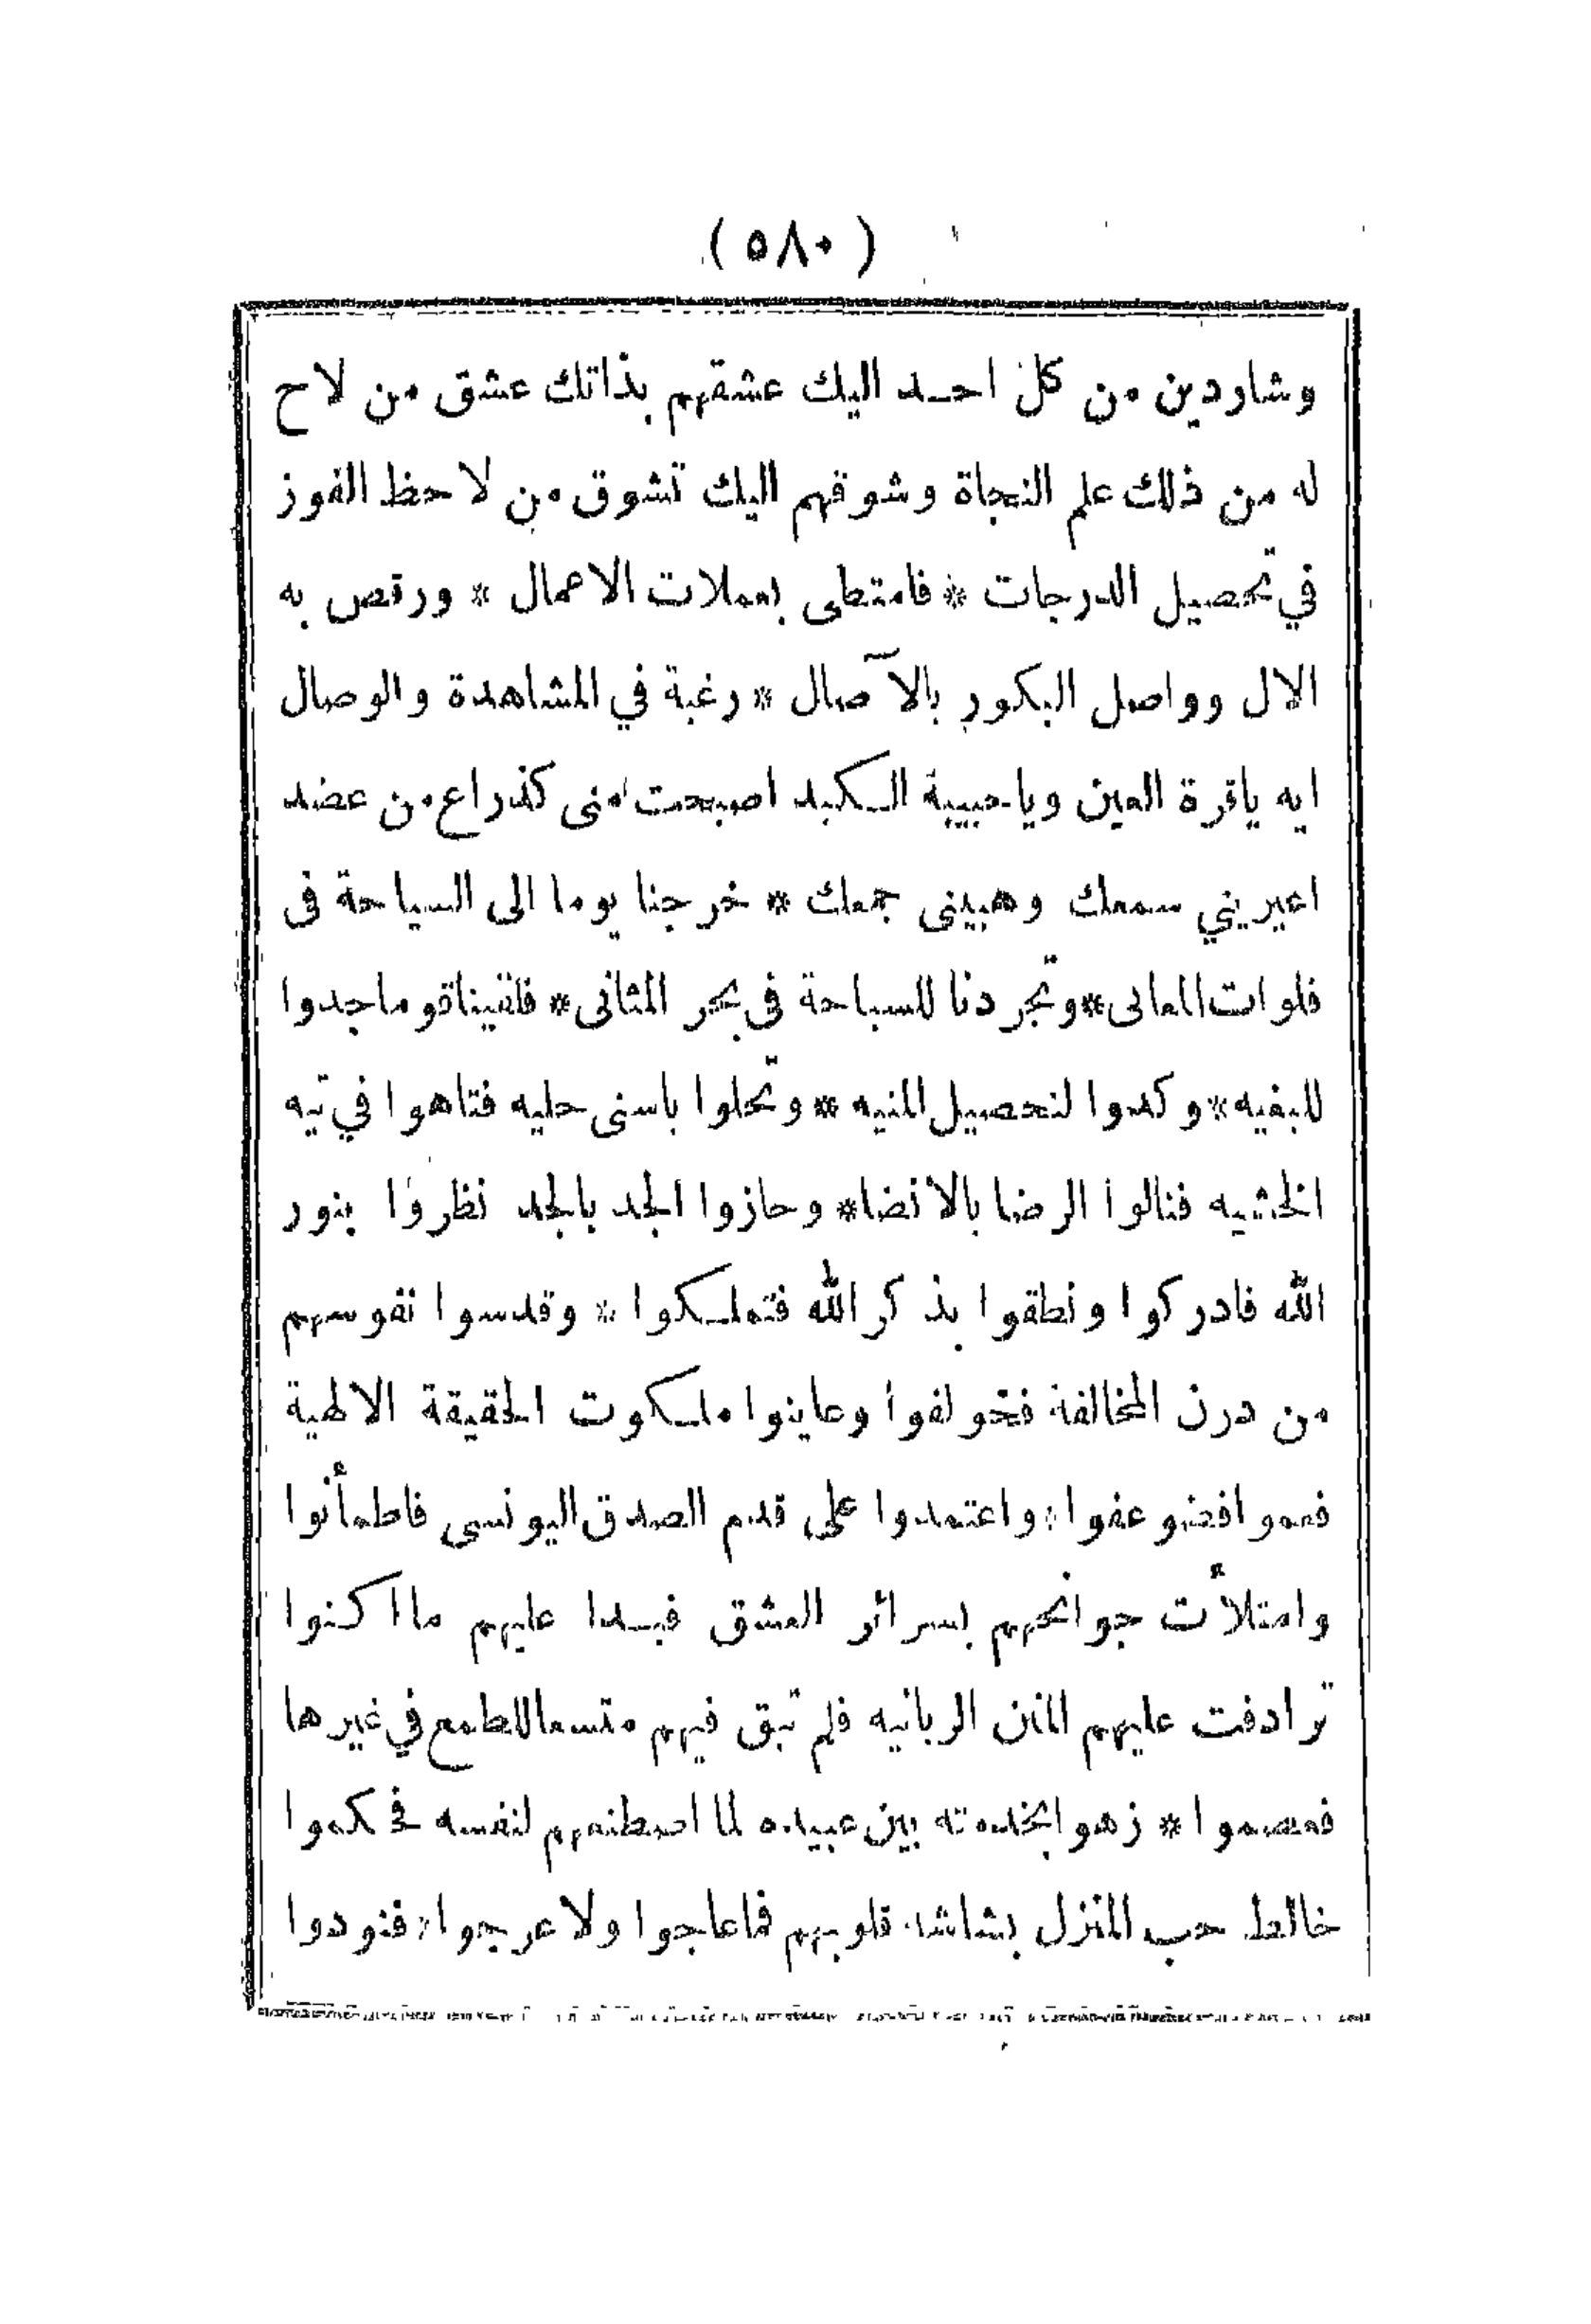 ( ٥٨٠ )
وشاردين من كل احد اليك عشقهم بذاتك عشق من لاح
له من ذلك علم النجاة وشوقهم اليك تشوق من لاحظ الفوز
في تحصيل الدرجات * فامتطى بعملات الاعمال * ورقص به
الال وواصل البكور بالآصال * رغبة في المشاهدة والوصال
ايه ياقرة العين وياحبيبة الكبد اصبحت منى كذراع من عضد
اعيريني سمعك وهبينى جمعك * خرجنا يوما الى السياحة فى
فلوات المعالى * وتجردنا للسباحة فى بحر المثانى * فلقينا قوما جدوا
للبغيه * وكدوا لتحصيل المنيه * وتحلوا باسنى حليه فتاهوا في تيه
الخشيه فنالوا الرضا بالانضا * وحازوا الجد بالجد نظروا بنور
الله فادركوا ونطقوا بذكر الله فتملكوا * وقدسوا نفوسهم
من درن المخالفة فخولفوا وعاينوا ملكوت الحقيقة الالهية
فعموا فعفوا * واعتمدوا على قدم الصدق اليونسى فاطمأنوا
وامتلأت جوانحهم بسرائر العشق فبدا عليهم ما اكنوا
ترادفت عليهم المنن الربانيه فلم تبق فيهم متسعا للطمع في غيرها
فعصموا * زهوا بخدمته بين عبيده لما اصطنعهم لنفسه فحكموا
خالط حب المنزل بشاشة قلوبهم فما عاجوا ولا عرجوا * فنودوا